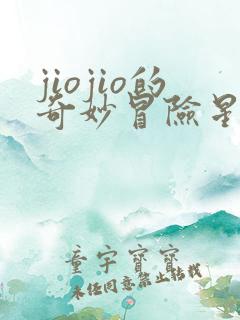 jiojio的
奇妙冒險星
童宇寶寶
未任同意禁止修載